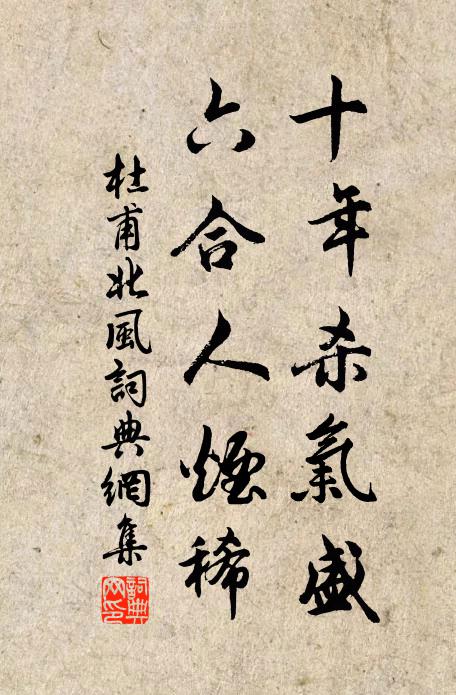 十年杀氣盛
六合人煙稀
杜甫北風詞典網集
詞典網印